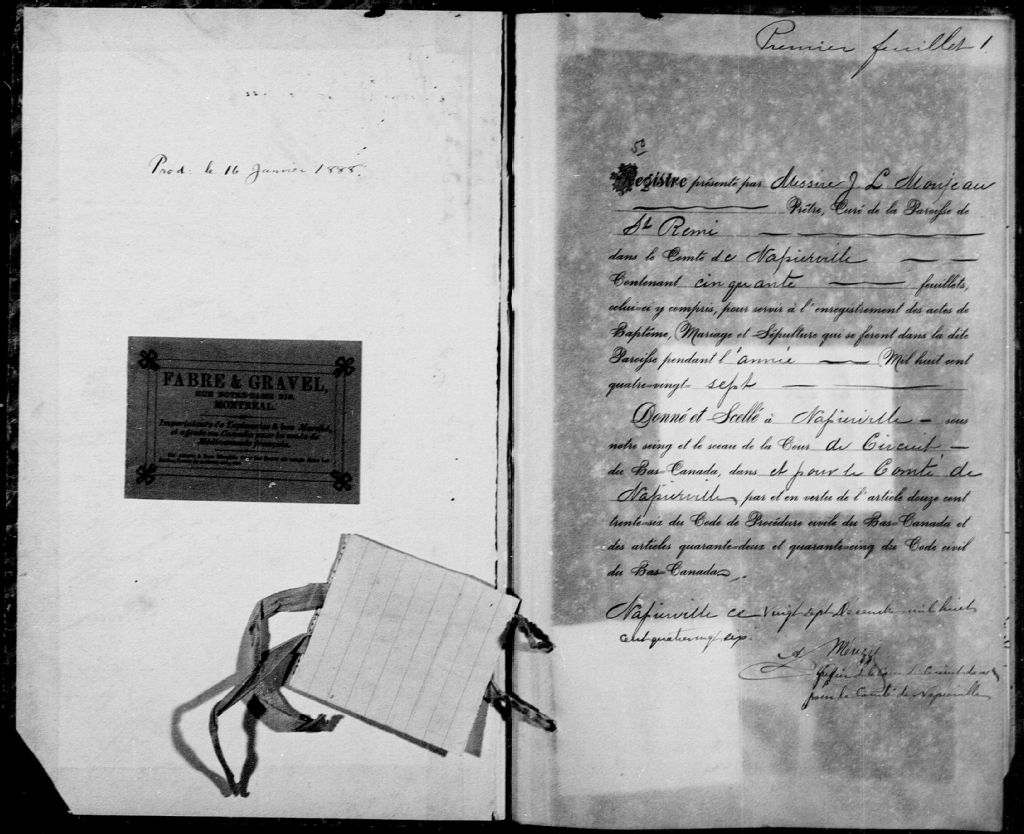 Prod. le 16 Janvier 1888.
FABRE & GRAVEL,
RUE NOTRE-DAME 219,
MONTREAL.
Importateurs de Tapisseries à bon Marché,
Premier feuillet 1
50
Registre présenté par Messire J L Monjeau
Prêtre, Curé de la Paroisse de
St Remi
dans le Comté de Napierville
Contenant cinquante feuillets,
celui-ci y compris, pour servir à l'enregistrement des actes de
Baptême, Mariage et Sépulture qui se feront dans la dite
Paroisse pendant l'année Mil huit cent
quatre-vingt sept
Donné et Scellé à Napierville sous
notre seing et le sceau de la Cour de Circuit
du Bas-Canada, dans et pour le Comté de
Napierville, par et en vertu de l'article douze cent
trente-six du Code de Procédure civile du Bas-Canada et
des articles quarante-deux et quarante-cinq du Code civil
du Bas-Canada.
Napierville ce vingt sept Decembre mil huit
cent quatrevingt six.
Greffier de la Cour de Circuit dans et
pour le Comté de Napierville